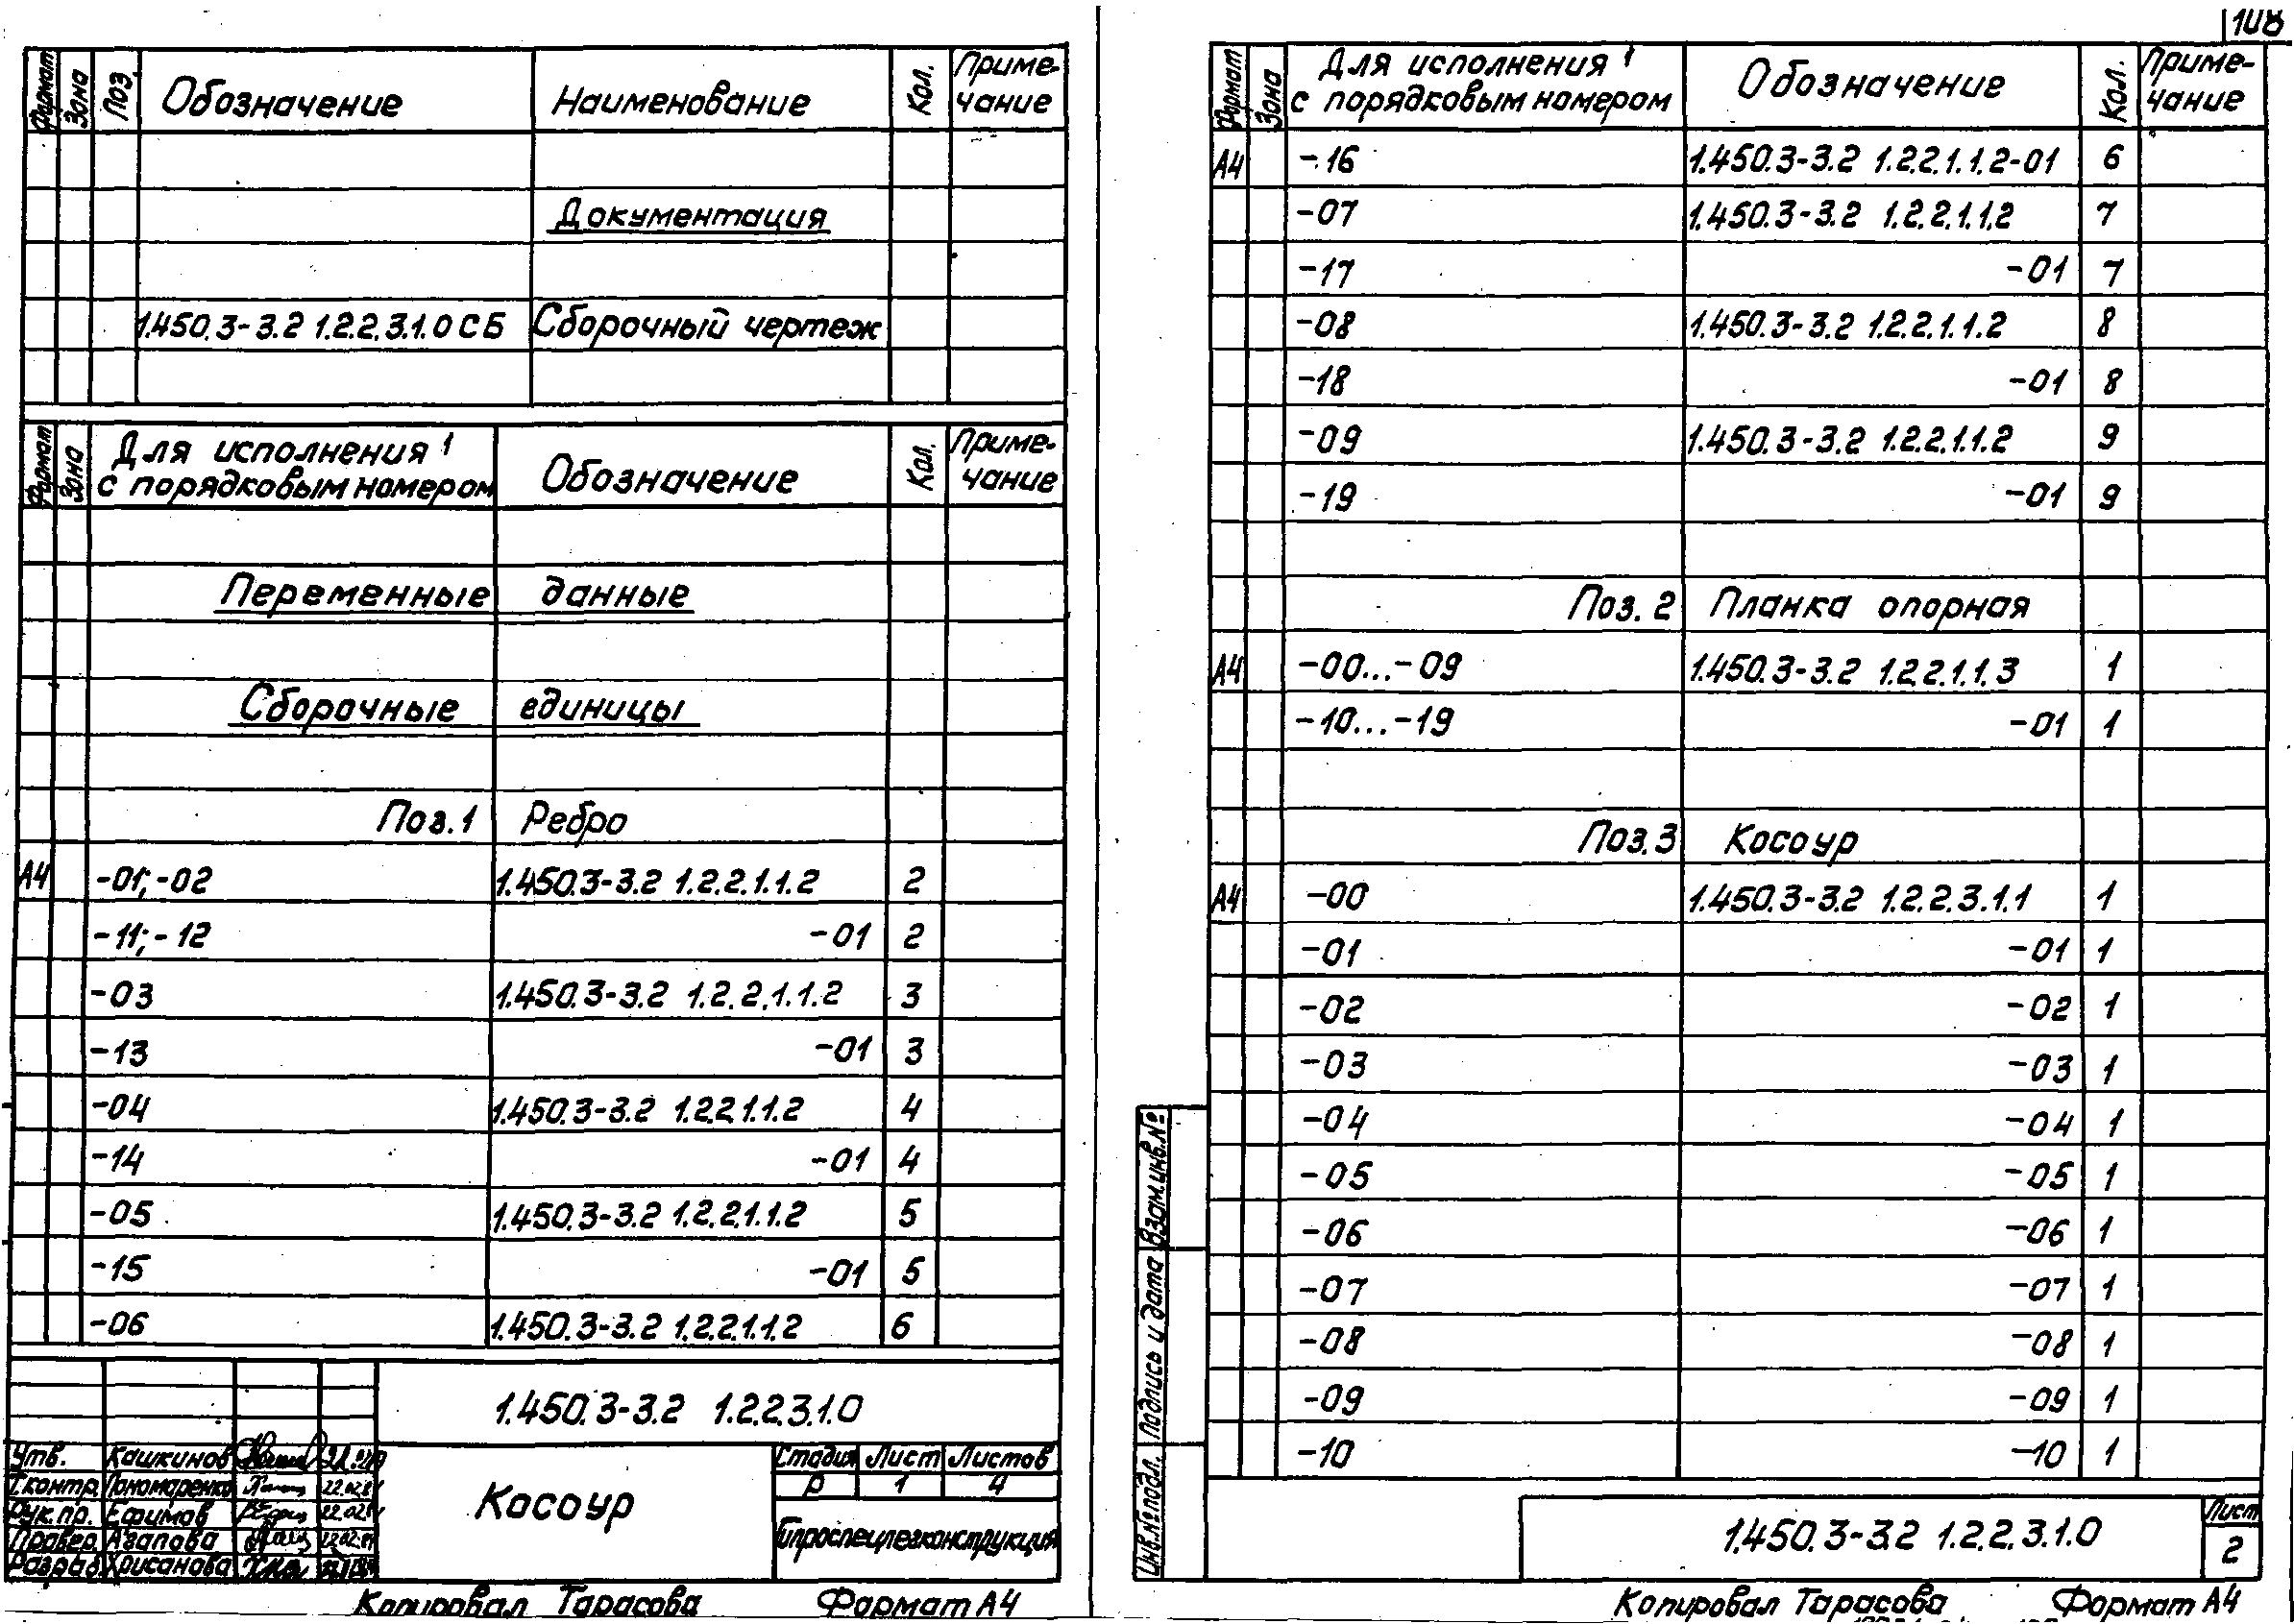 Формат Зона Поз. Обозначение Наименование Кол. Приме-
чание
Документация
1.450.3-3.2 1.2.2.3.1.0 СБ Сборочный чертеж
Формат Зона Для исполнения Обозначение Кол. Приме-
с порядковым номером чание
Переменные данные
Сборочные единицы
Поз.1 Ребро
А4 -01;-02 1.450.3-3.2 1.2.2.1.1.2 2
-11;-12 -01 2
-03 1.450.3-3.2 1.2.2.1.1.2 3
-13 -01 3
-04 1.450.3-3.2 1.2.2.1.1.2 4
-14 -01 4
-05 1.450.3-3.2 1.2.2.1.1.2 5
-15 -01 5
-06 1.450.3-3.2 1.2.2.1.1.2 6
1.450.3-3.2 1.2.2.3.1.0
Утв. Кашкинов
Т.контр. Пономаренко 22.02.
Рук.пр. Ефимов 22.02.
Провер. Агапова 22.02.
Разраб. Хрисанова
Косоур
Стадия Лист Листов
Р 1 4
Гипроспецлегконструкция
Копировал Тарасова Формат А4
108
Формат Зона Для исполнения Обозначение Кол. Приме-
с порядковым номером чание
А4 -16 1.450.3-3.2 1.2.2.1.1.2-01 6
-07 1.450.3-3.2 1.2.2.1.1.2 7
-17 -01 7
-08 1.450.3-3.2 1.2.2.1.1.2 8
-18 -01 8
-09 1.450.3-3.2 1.2.2.1.1.2 9
-19 -01 9
Поз. 2 Планка опорная
А4 -00...-09 1.450.3-3.2 1.2.2.1.1.3 1
-10...-19 -01 1
Поз.3 Косоур
А4 -00 1.450.3-3.2 1.2.2.3.1.1 1
-01 -01 1
-02 -02 1
-03 -03 1
-04 -04 1
-05 -05 1
-06 -06 1
-07 -07 1
-08 -08 1
-09 -09 1
-10 -10 1
Взам.инв.№
Подпись и дата
Инв.№ подл.
1.450.3-3.2 1.2.2.3.1.0
Лист
2
Копировал Тарасова Формат А4